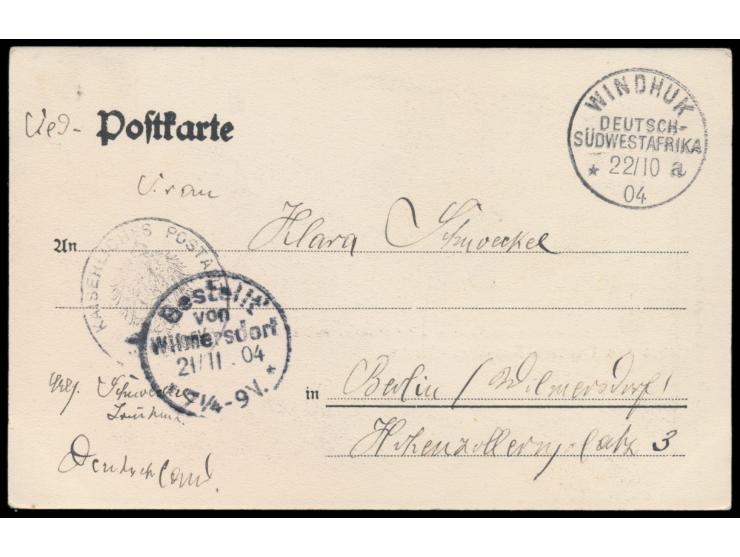 Postkarte
WINDHUK
DEUTSCH-
SÜDWESTAFRIKA
* 22/10 a
04
An Klara Schweckel
KAISERLICHES POSTA
Bestellt
von
Wilmersdorf
21/11. 04
* 7¼-9V. *
in Berlin / Wilmersdorf
Hohenzollernplatz 3
Deutschland.